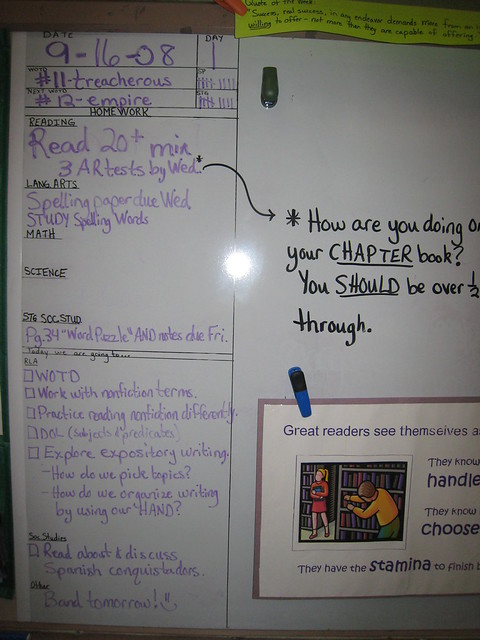 Quote of the Week:
"Success, real success, in any endeavor demands more from an
willing to offer - not more than they are capable of offering.
DATE
9-16-08
DAY
1
WORD
#11-treacherous
NEXT WORD
#12-empire
HOMEWORK
READING
Read 20+ min
3 AR tests by Wed.*
LANG ARTS
Spelling paper due Wed
STUDY Spelling Words
MATH
SCIENCE
STG SOC STUD
Pg. 34 "Word Puzzle" AND notes due Fri.
Today we are going to...
RLA
WOTD
Work with nonfiction terms.
Practice reading nonfiction differently.
DOL (subjects & predicates)
Explore expository writing.
- How do we pick topics?
- How do we organize writing
by using our HAND?
Soc Studies
Read about & discuss
Spanish conquistadors.
Other
Band tomorrow!
* How are you doing on
your CHAPTER book?
You SHOULD be over 1/2
through.
Great readers see themselves as
They know
handle
They know
choose
They have the stamina to finish